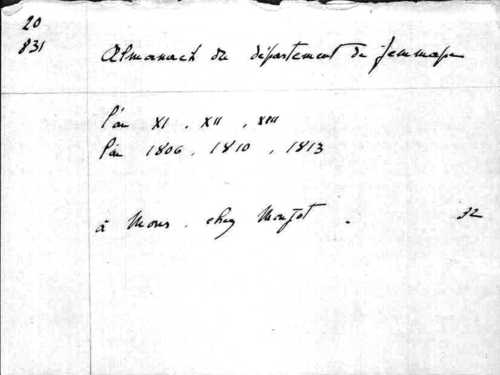 20
831
Almanach du département de Jemmape
l'an XI, XII, XIII
l'an 1806, 1810, 1813
à Mons. chez Monjot. 32